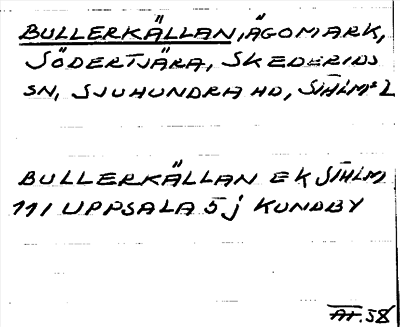 BULLERKÄLLAN, ÄGOMARK,
SÖDERTJÄRA, SKEDERIDS
SN, SJUHUNDRA HD, STHLMS L
BULLERKÄLLAN EK STHLM
111 UPPSALA 5j KUNDBY
AF.58